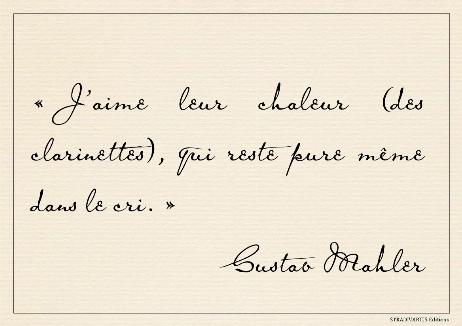 « J'aime leur chaleur (des
clarinettes), qui reste pure même
dans le cri. »
Gustav Mahler
STRADIVARIUS Editions